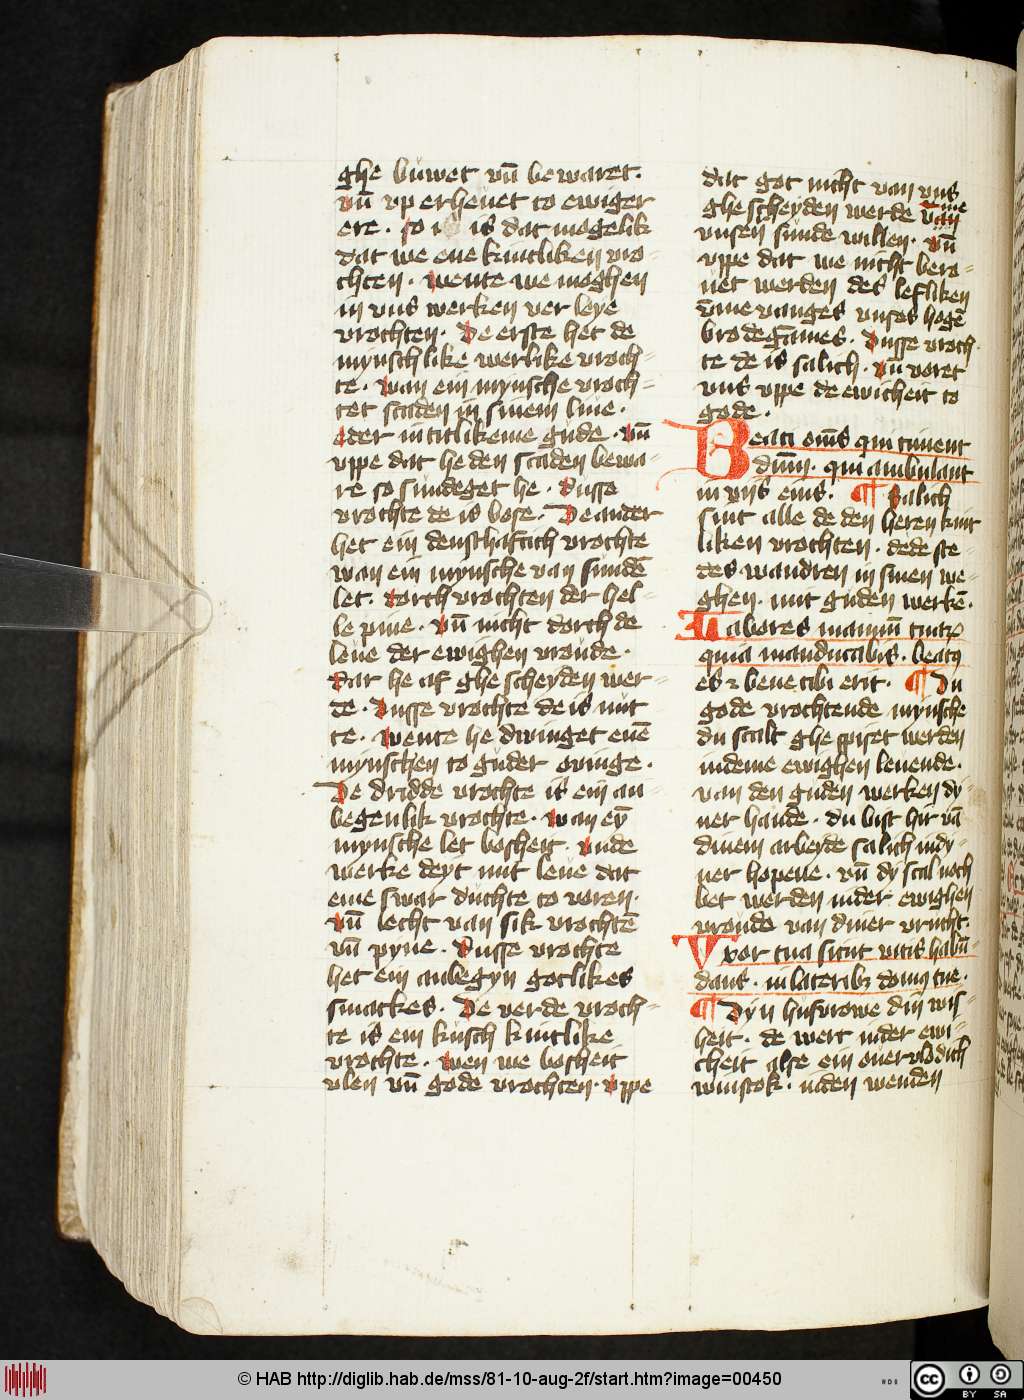 ghe buwet vn̄ bewaret.
vn̄ vp erheuet to ewiger
ere. so is dat mogelik
dat we ene kintliken vro
chten. wente we moghen
in vns werken ver leye
vrochten. De erste het de
mynschlike werlike vroch-
te. wan ein mynsche vroch-
tet scaden in sinem liue.
eder in titlikeme gude. vn̄
vppe dat he den scaden bewa-
re so sundeget he. dusse
vrochte de is bose. De ander
het ein denschaftich vrochte
wan ein mynsche van sundē
let. dorch vrochten der hel-
le pine. vn̄ nicht dorch de
leue der ewighen vroude.
dar he af ghescheyden wer-
de. Dusse vrochte de is nut
te. wente he dwinget enē
mynschen to guder ouinge.
De dridde vrochte is ein an
begenlik vrochte. wan eȳ
mynsche let bosheit. vnde
werke deyt mit leue dat
eme swar duchte to voren.
vn̄ lecht van sik vrochtē
vn̄ pyne. Dusse vrochte
het ein anbegyn gotlikes
smackes. De verde vroch-
te is ein kusch kintlike
vrochte. wen we bosheit
vlen vn̄ gode vrochten. vppe
dat got nicht van vns
ghescheyden werde vme
vnsen sunde willen. vn̄
vppe dat we nicht bero-
uet werden des lefliken
vmevanges vnses hogē
brodegames. Dusse vroch-
te de is salich. vn̄ voret
vns vppe de ewicheit to
gode.
Beati om̄s qui timent
dūm. qui ambulant
in viis eius. ¶ Salich
sint alle de den heren kint
liken vrochten. de de ste-
des wandren in sinen we-
ghen. mit guden werkē.
Labores manuū tuaꝝ
quia manducabis. beatꝯ
es ⁊ bene tibi erit. ¶ Du
gode vrochtende mynsche
du scalt ghespiset werden
indeme ewighen leuende.
van den guden werken dy-
ner hande. du bist hir vā
dinem arbeyde salich in dy-
ner hopene. vn̄ dy scal noch
bet werden in der ewighen
vroude van diner vrucht.
Vxor tua sicut vitis habū
dans. in lateribꝫ domꝯ tue.
¶ Dyn husvrowe din wis-
heit. de wert in der ewi-
cheit alse ein ouervlodich
winstok. in den wenden
© HAB http://diglib.hab.de/mss/81-10-aug-2f/start.htm?image=00450
HAB
cc BY SA